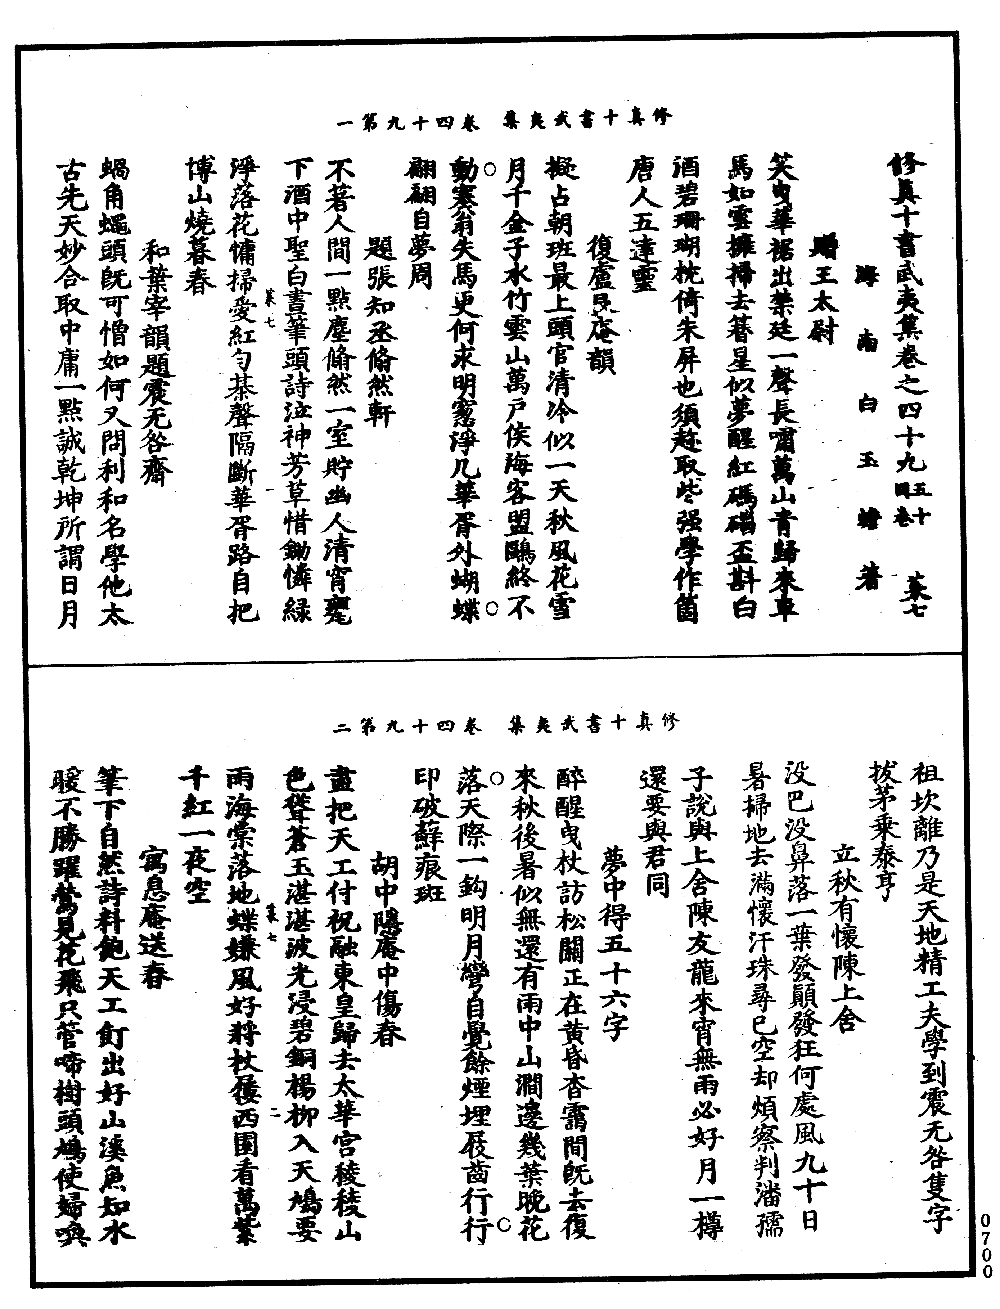 修真十書武夷集 卷四十九第一
修真十書武夷集卷之四十九 五十同卷 菜七
海南白玉蟾著
贈王太尉
笑曳華裾出禁廷一聲長嘯萬山青歸來車
馬如雲擁掃去暮星似夢醒紅碼碯盃斟白
酒碧珊瑚枕倚朱屏也須趁取些强學作箇
唐人五達靈
復盧艮庵韻
擬占朝班最上頭官清冷似一天秋風花雪
月千金子水竹雲山萬戶侯海客盟鷗終不
動塞翁失馬更何求明窻淨几華胥外蝴蝶
翩翩自夢周
題張知丞翛然軒
不著人間一點塵翛然一室貯幽人清宵甕
下酒中聖白晝筆頭詩泣神芳草惜鋤憐綠
淨落花慵掃愛紅勻棊聲隔斷華胥路自把
博山燒暮春
和葉宰韻題震无咎齋
蝸角蠅頭旣可憎如何又問利和名學他太
古先天妙合取中庸一點誠乾坤所謂日月
菜七
一
修真十書武夷集 卷四十九第二
祖坎離乃是天地精工夫學到震无咎隻字
拔茅乘泰亨
立秋有懷陳上舍
没巴没鼻落一葉發顛發狂何處風九十日
暑掃地去滿懷汗珠尋已空却煩察判潘孺
子說與上舍陳友龍來宵無雨必好月一樽
還要與君同
夢中得五十六字
醉醒曳杖訪松關正在黃昏杳靄間旣去復
來秋後暑似無還有雨中山澗邊幾葉晚花
落天際一鈎明月彎自覺餘煙埋屐齒行行
印破蘚痕班
胡中隱庵中傷春
盡把天工付祝融東皇歸去太華宮稜稜山
色聳蒼玉湛湛波光浸碧銅楊柳入天鳩要
雨海棠落地蝶嫌風好將杖屨西園看萬紫
千紅一夜空
寓息庵送春
筆下自然詩料飽天工飣出好山溪魚知水
暖不勝躍鶯見花飛只管啼樹頭鳩使婦喚
菜七
二
0700